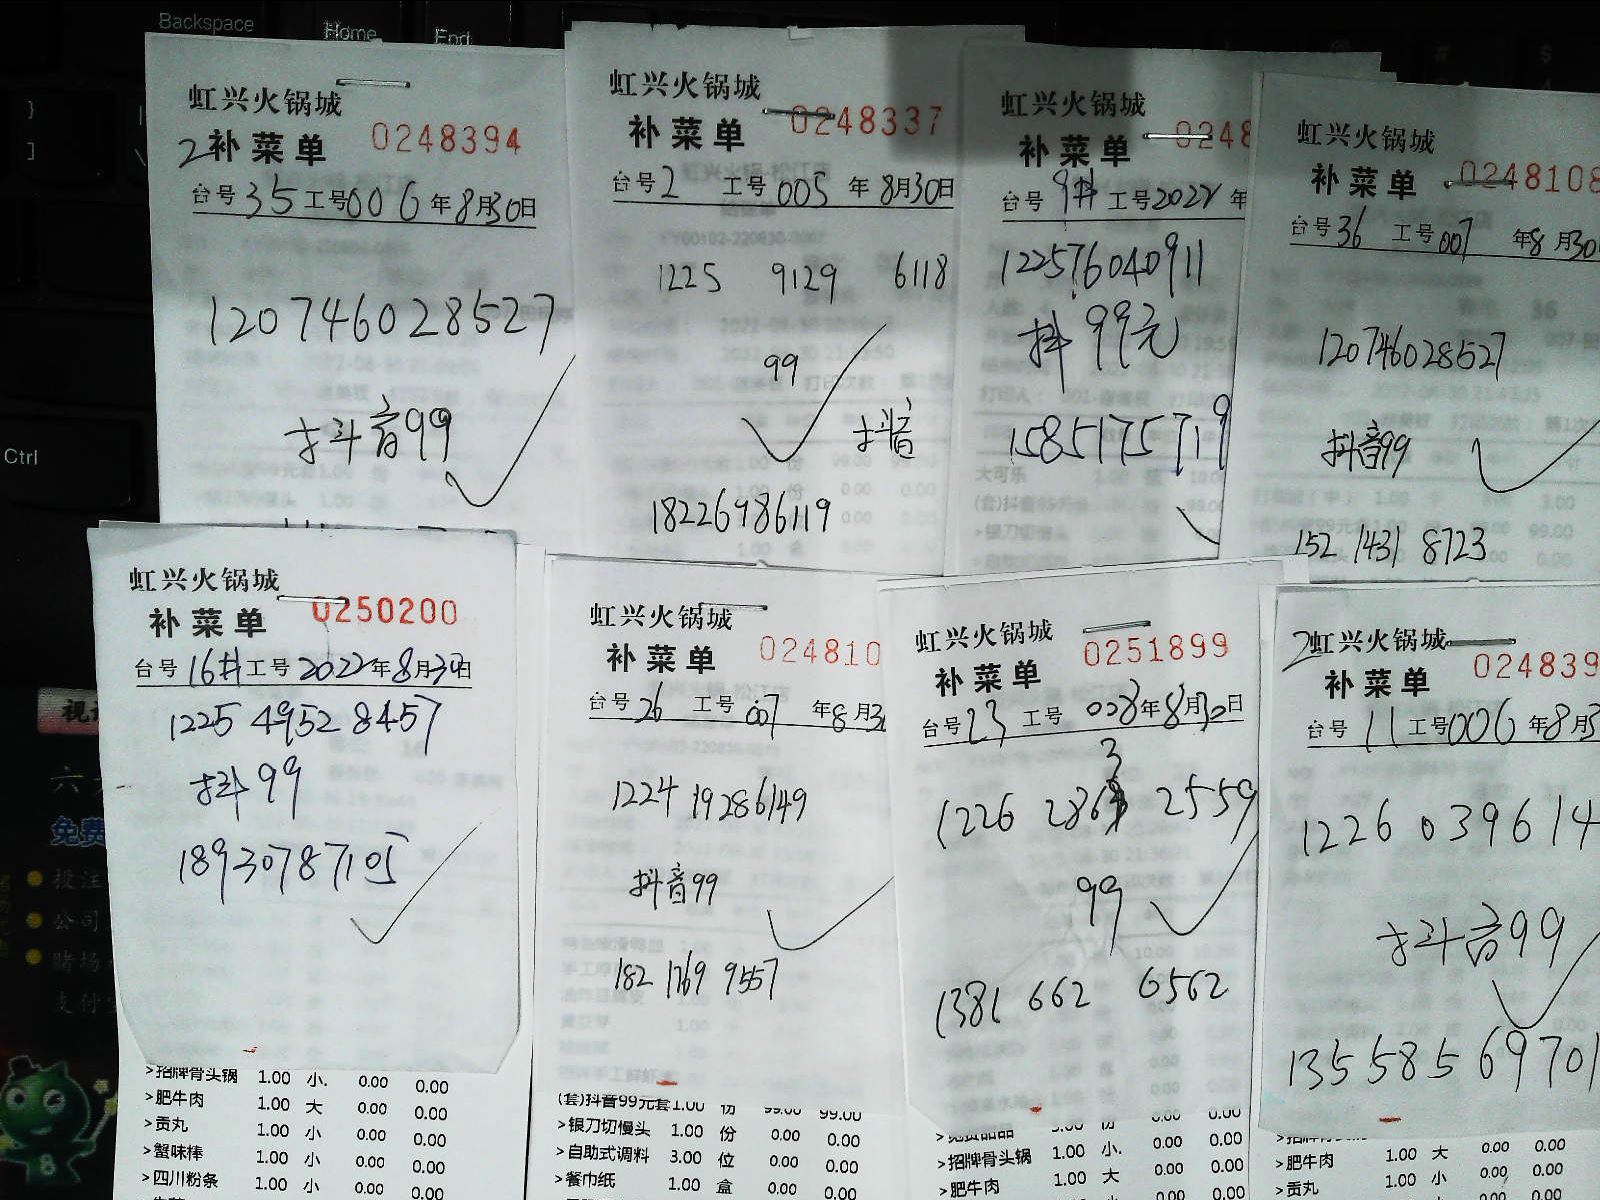 Backspace
Home
End
}
]
Ctrl
虹兴火锅城
2补菜单 0248394
台号35工号006年8月30日
120746028527
抖音99
虹兴火锅城
补菜单 0248337
台号2 工号005 年8月30日
1225 9129 6118
99
抖音
18226986119
虹兴火锅城
补菜单 0248
台号9# 工号2022年
122576040911
抖 99元
15851757119
大可乐
虹兴火锅城
补菜单 0248108
台号36 工号007 年8月30
120746028527
抖音99
152 1431 8723
虹兴火锅城
补菜单 0250200
台号16#工号2022年8月30日
1225 4952 8457
抖 99
18930787105
>招牌骨头锅 1.00 小. 0.00 0.00
>肥牛肉 1.00 大 0.00 0.00
>贡丸 1.00 小 0.00 0.00
>蟹味棒 1.00 小 0.00 0.00
>四川粉条 1.00 小 0.00 0.00
虹兴火锅城
补菜单 024810
台号26 工号007 年8月30
1224 19286149
抖音99
182 1769 9557
(套)抖音99元套1.00 份 99.00 99.00
>银刀切馒头 1.00 份 0.00 0.00
>自助式调料 3.00 位 0.00 0.00
>餐巾纸 1.00 盒 0.00 0.00
虹兴火锅城
补菜单 0251899
台号23 工号008年8月30日
3
1226 286 2559
99
1381 662 6562
>招牌骨头锅 1.00 小. 0.00
>肥牛肉 1.00 大 0.00
2虹兴火锅城
补菜单 024839
台号11工号006年8月3
1226 039614
抖音99
135585 69701
>肥牛肉 1.00 大 0.00
>贡丸 1.00 小 0.00
免费
投注
公司
赌场
支付